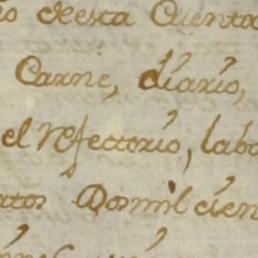 de esta Cuenta
Carne, diario,
el refectorio, lab
Dos mil cien